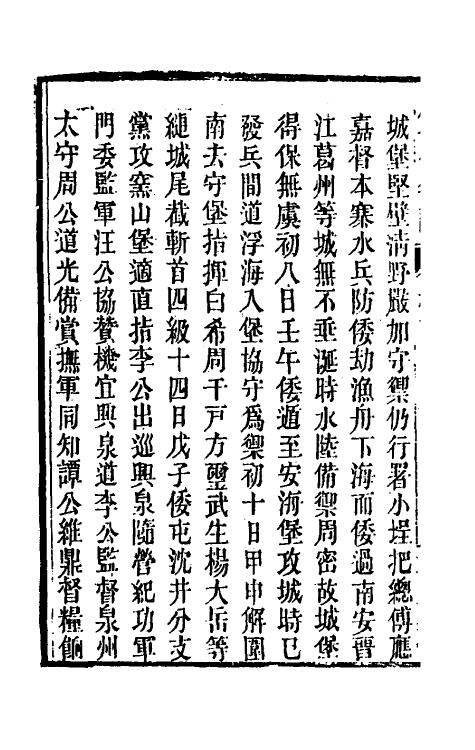 城堡堅壁清野嚴加守禦仍行署小埕把總傅應
嘉督本寨水兵防倭劫漁舟下海而倭過南安晉
江葛州等城無不垂涎時水陸備禦周密故城堡
得保無虞初八日壬午倭遁至安海堡攻城時巳
發兵間道浮海入堡協守爲禦初十日甲申解圍
南去守堡指揮白希周千戸方璽武生楊大岳等
縋城尾截斬首四級十四日戊子倭屯沈井分支
黨攻窰山堡適直指李公出巡興泉隨營紀功軍
門委監軍汪公協贊機宜興泉道李公監督泉州
太守周公道光備賞撫軍同知譚公維鼎督糧餉